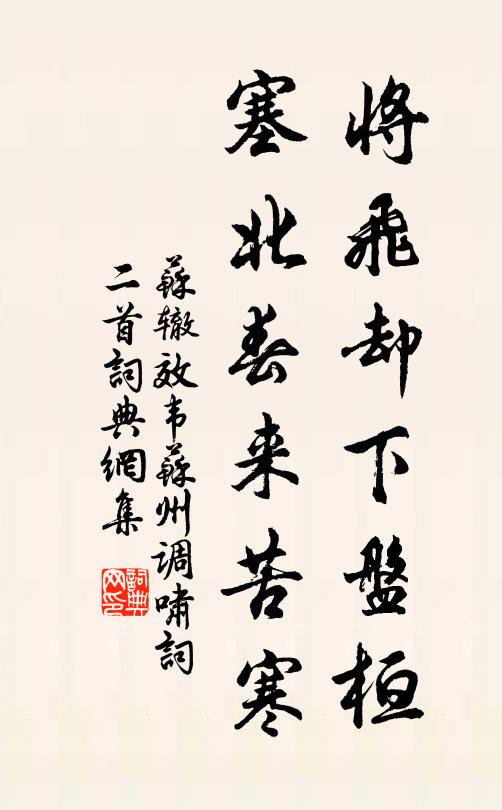 將飛却下盤桓
塞北春来苦寒
蘇辙效韦蘇州调嘯詞
二首詞典網集
詞典
网印